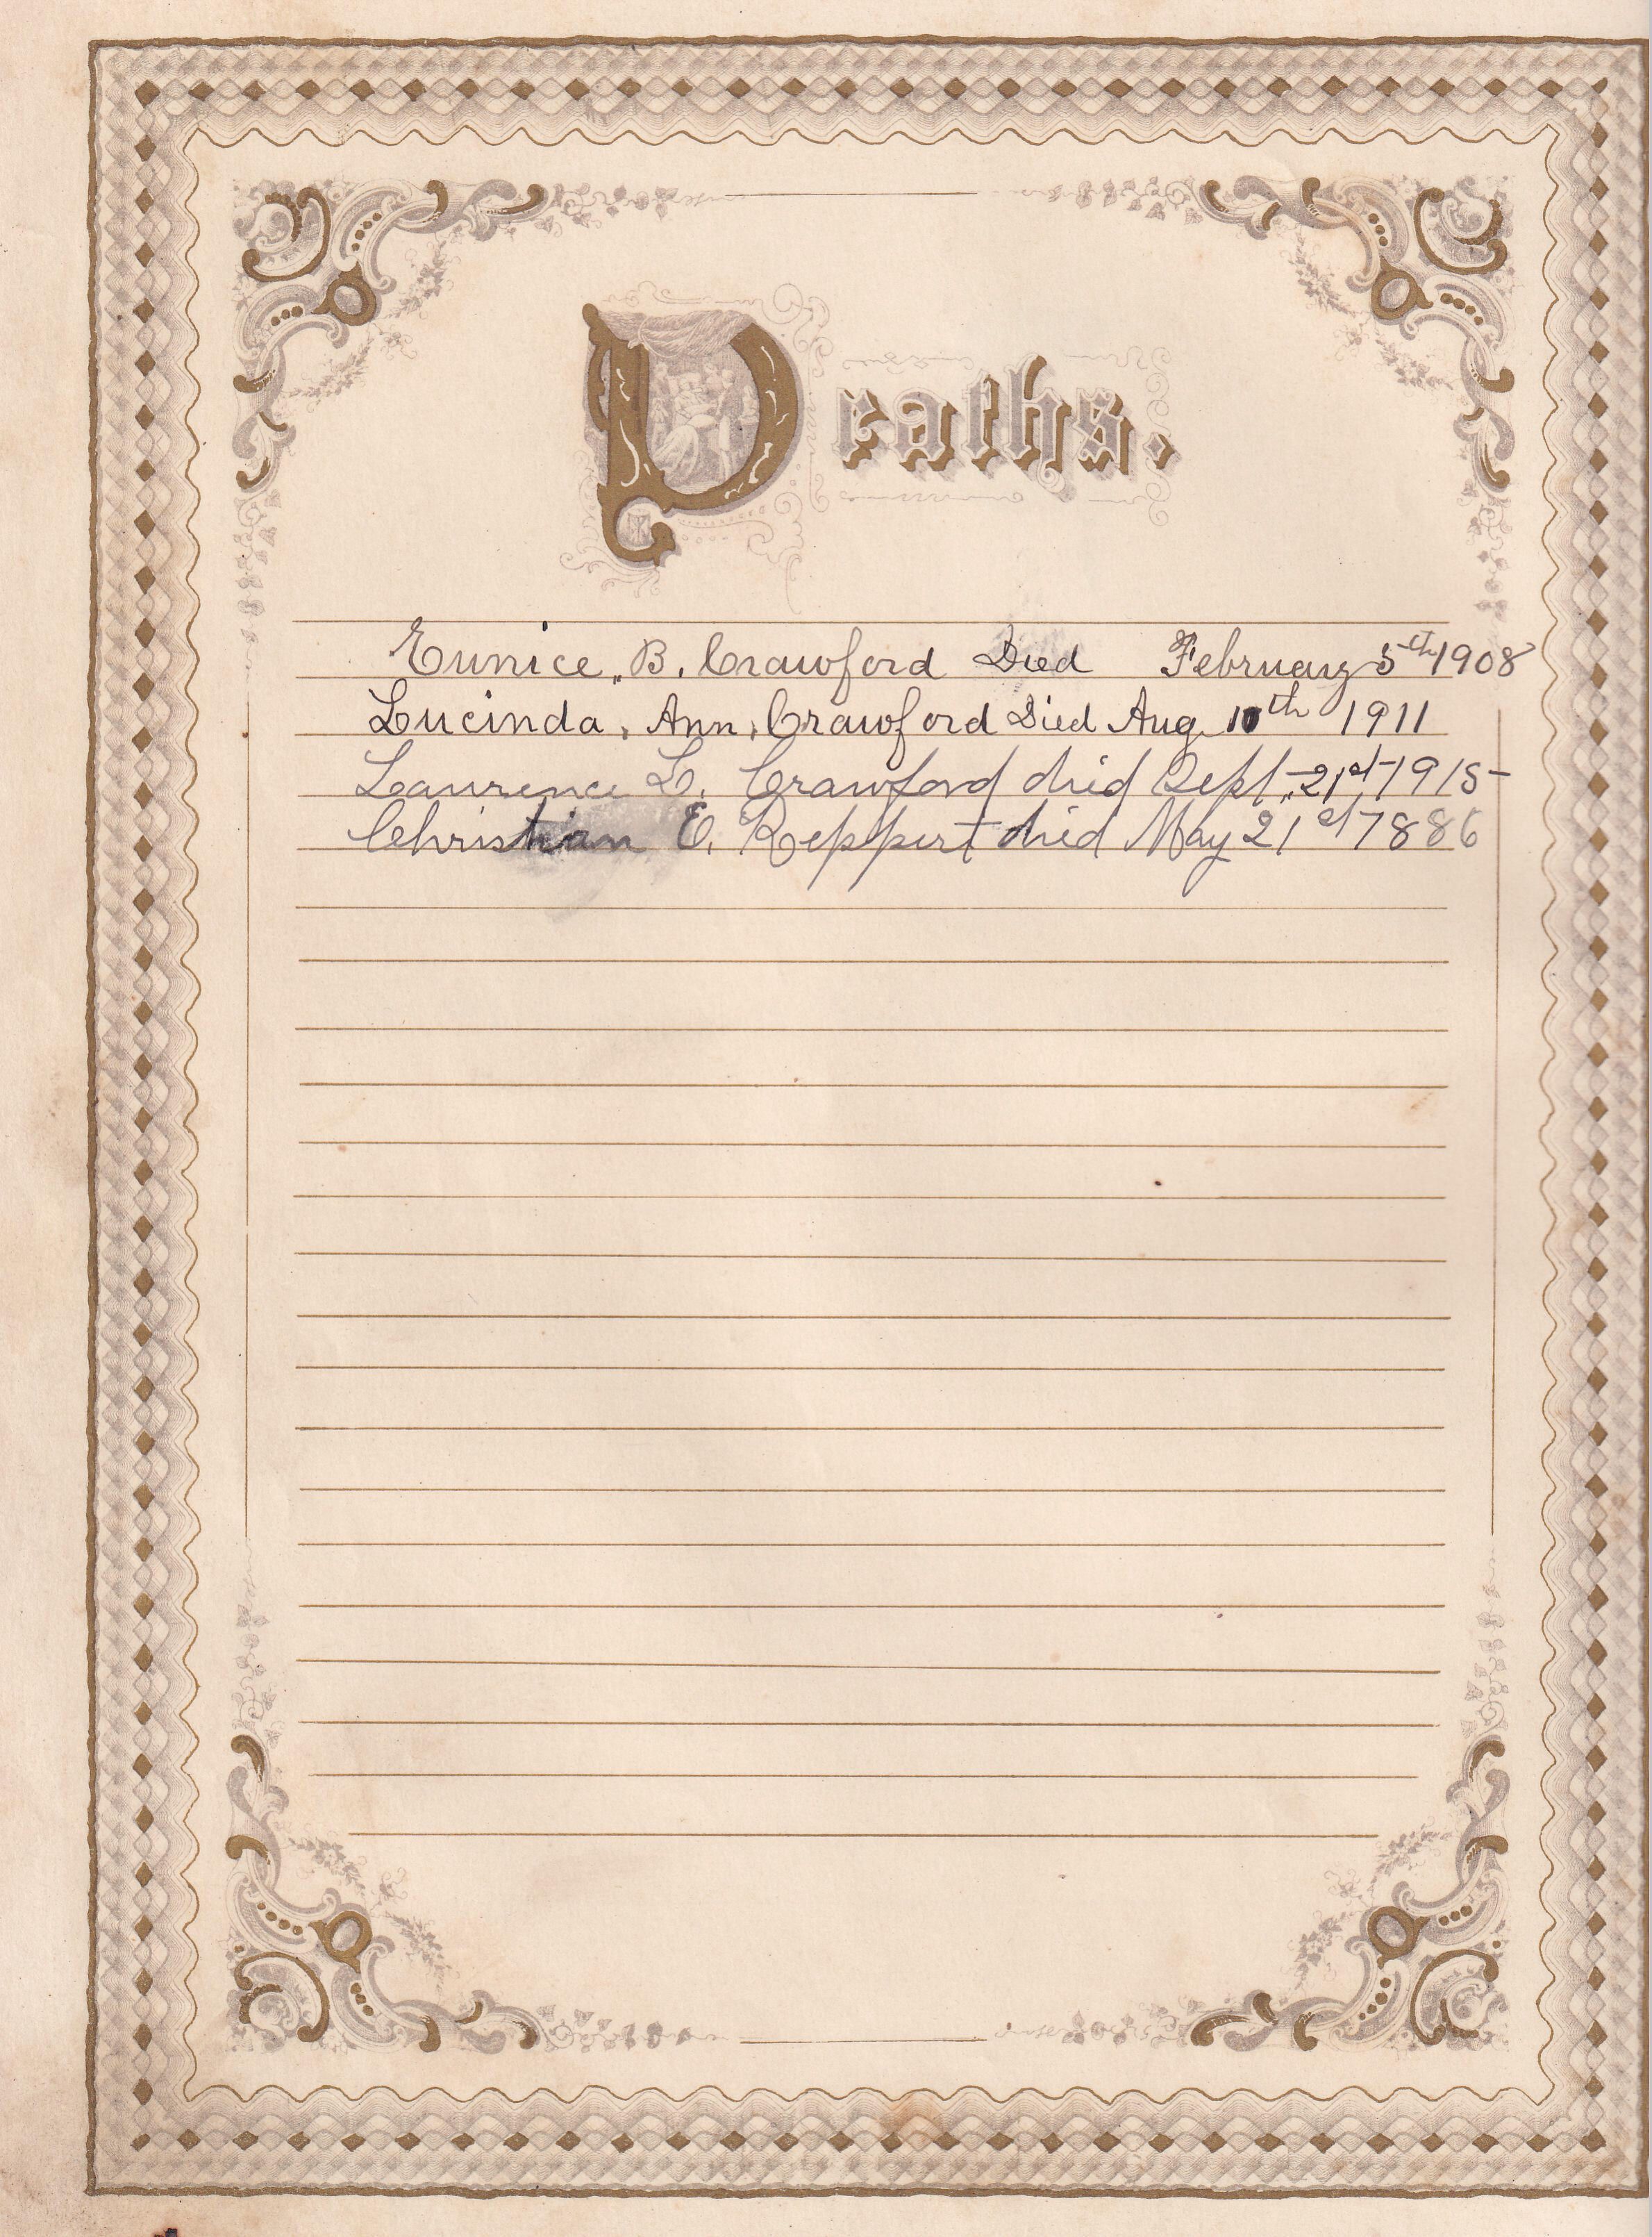 Deaths.
Eunice, B. Crawford Died February 5th 1908
Lucinda, Ann, Crawford Died Aug 10th 1911
Laurence L. Crawford died Sept. 21st 1915
Christian E. Reppert died May 21st 1886